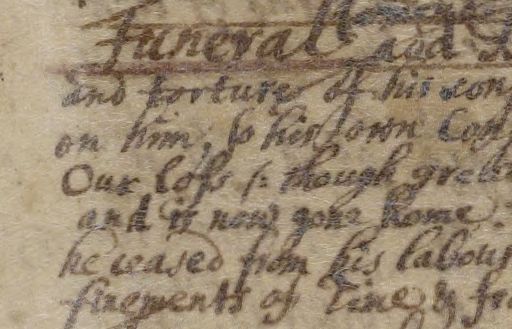 Funeral and
and torture of his con
on him, so his own Con
Our loss /: though grea
and is now gone home.
he ceased from his labour
finements of Time, & fr